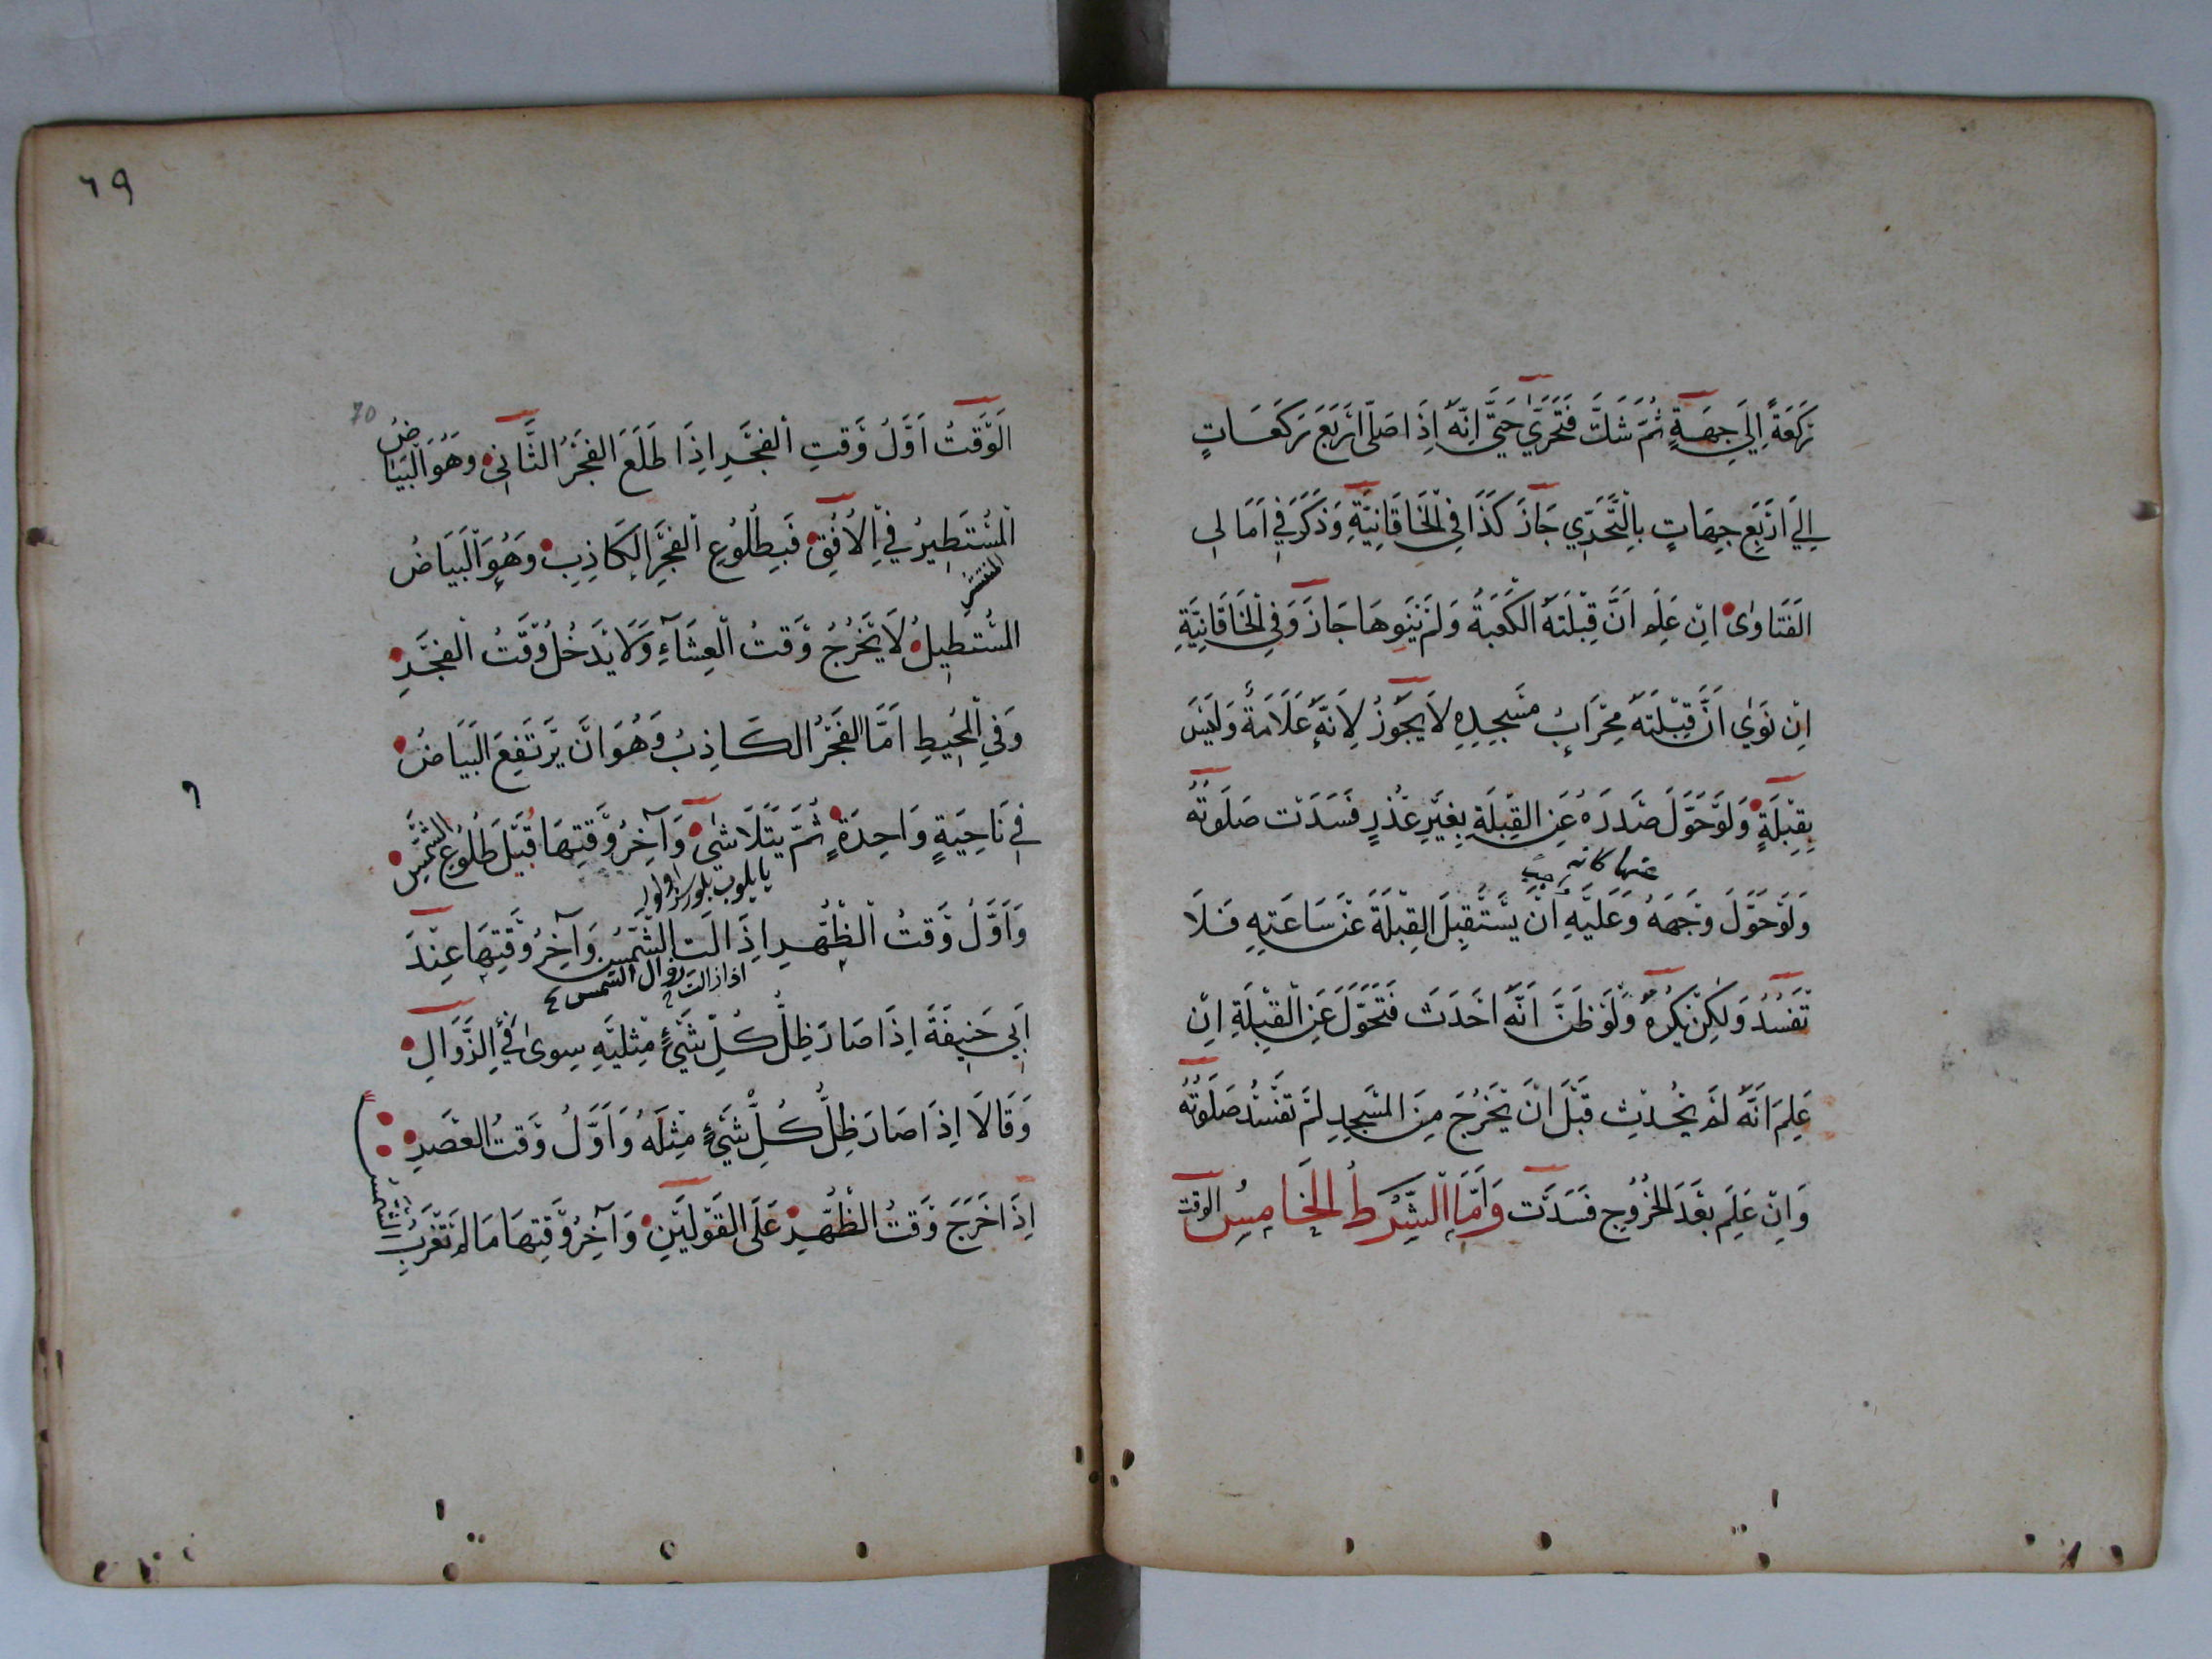 رَكْعَةً اِلَى جِهَةٍ ثُمَّ شَكَّ فَتَحَرَّى حَتَّى اِنَّهُ اِذَا صَلَّى اَرْبَعَ رَكَعَاتٍ
اِلَى اَرْبَعِ جِهَاتٍ بِالتَّحَرِّي جَازَ كَذَا فِي الْخَاقَانِيَّةِ وَذَكَرَ فِي اَمَالِى
الْفَتَاوٰى اِنْ عَلِمَ اَنَّ قِبْلَتَهُ الْكَعْبَةُ وَلَمْ يَنْوِهَا جَازَ وَفِي الْخَاقَانِيَّةِ
اِنْ نَوٰى اَنَّ قِبْلَتَهُ مِحْرَابُ مَسْجِدِهِ لَا يَجُوزُ لِاَنَّهُ عَلَامَةٌ وَلَيْسَ
بِقِبْلَةٍ وَلَوْ حَوَّلَ صَدْرَهُ عَنِ الْقِبْلَةِ بِغَيْرِ عُذْرٍ فَسَدَتْ صَلَوتُهُ
وَلَوْ حَوَّلَ وَجْهَهُ وَعَلَيْهِ اَنْ يَسْتَقْبِلَ الْقِبْلَةَ عَنْ سَاعَتِهِ فَلَا
تَفْسُدُ وَلٰكِنْ يُكْرَهُ وَلَوْ ظَنَّ اَنَّهُ اَحْدَثَ فَتَحَوَّلَ عَنِ الْقِبْلَةِ اِنْ
عَلِمَ اَنَّهُ لَمْ يُحْدِثْ قَبْلَ اَنْ يَخْرُجَ مِنَ الْمَسْجِدِ لَمْ تَفْسُدْ صَلَوتُهُ
وَاِنْ عَلِمَ بَعْدَ الْخُرُوجِ فَسَدَتْ وَاَمَّا الشَّرْطُ الْخَامِسُ الوقت
٦٩
70
اَلْوَقْتُ اَوَّلُ وَقْتِ الْفَجْرِ اِذَا طَلَعَ الْفَجْرُ الثَّانِى وَهُوَ الْبَيَاضُ
الْمُسْتَطِيرُ فِي الْاُفُقِ فَبِطُلُوعِ الْفَجْرِ الْكَاذِبِ وَهُوَ الْبَيَاضُ
المنتشر
الْمُسْتَطِيلُ لَا يَخْرُجُ وَقْتُ الْعِشَآءِ وَلَا يَدْخُلُ وَقْتُ الْفَجْرِ
وَفِي الْمُحِيطِ اَمَّا الْفَجْرُ الْكَاذِبُ وَهُوَ اَنْ يَرْتَفِعَ الْبَيَاضُ
فِي نَاحِيَةٍ وَاحِدَةٍ ثُمَّ يَتَلَاشٰى وَآخِرُ وَقْتِهَا قُبَيْلَ طُلُوعِ الشَّمْسِ
وَاَوَّلُ وَقْتُ الظُّهْرِ اِذَا لَتِ الشَّمْسُ وَآخِرُ وَقْتِهَا عِنْدَ
اذا زالت زوال الشمس
اَبِي حَنِيفَةَ اِذَا صَارَ ظِلُّ كُلِّ شَيْءٍ مِثْلَيْهِ سِوٰى فَيْءِ الزَّوَالِ
وَقَالَا اِذَا صَارَ ظِلُّ كُلِّ شَيْءٍ مِثْلَهُ وَاَوَّلُ وَقْتُ الْعَصْرِ
اِذَا خَرَجَ وَقْتُ الظُّهْرِ عَلَى الْقَوْلَيْنِ وَآخِرُ وَقْتِهَا مَا لَمْ تَغْرُبِ الشمس